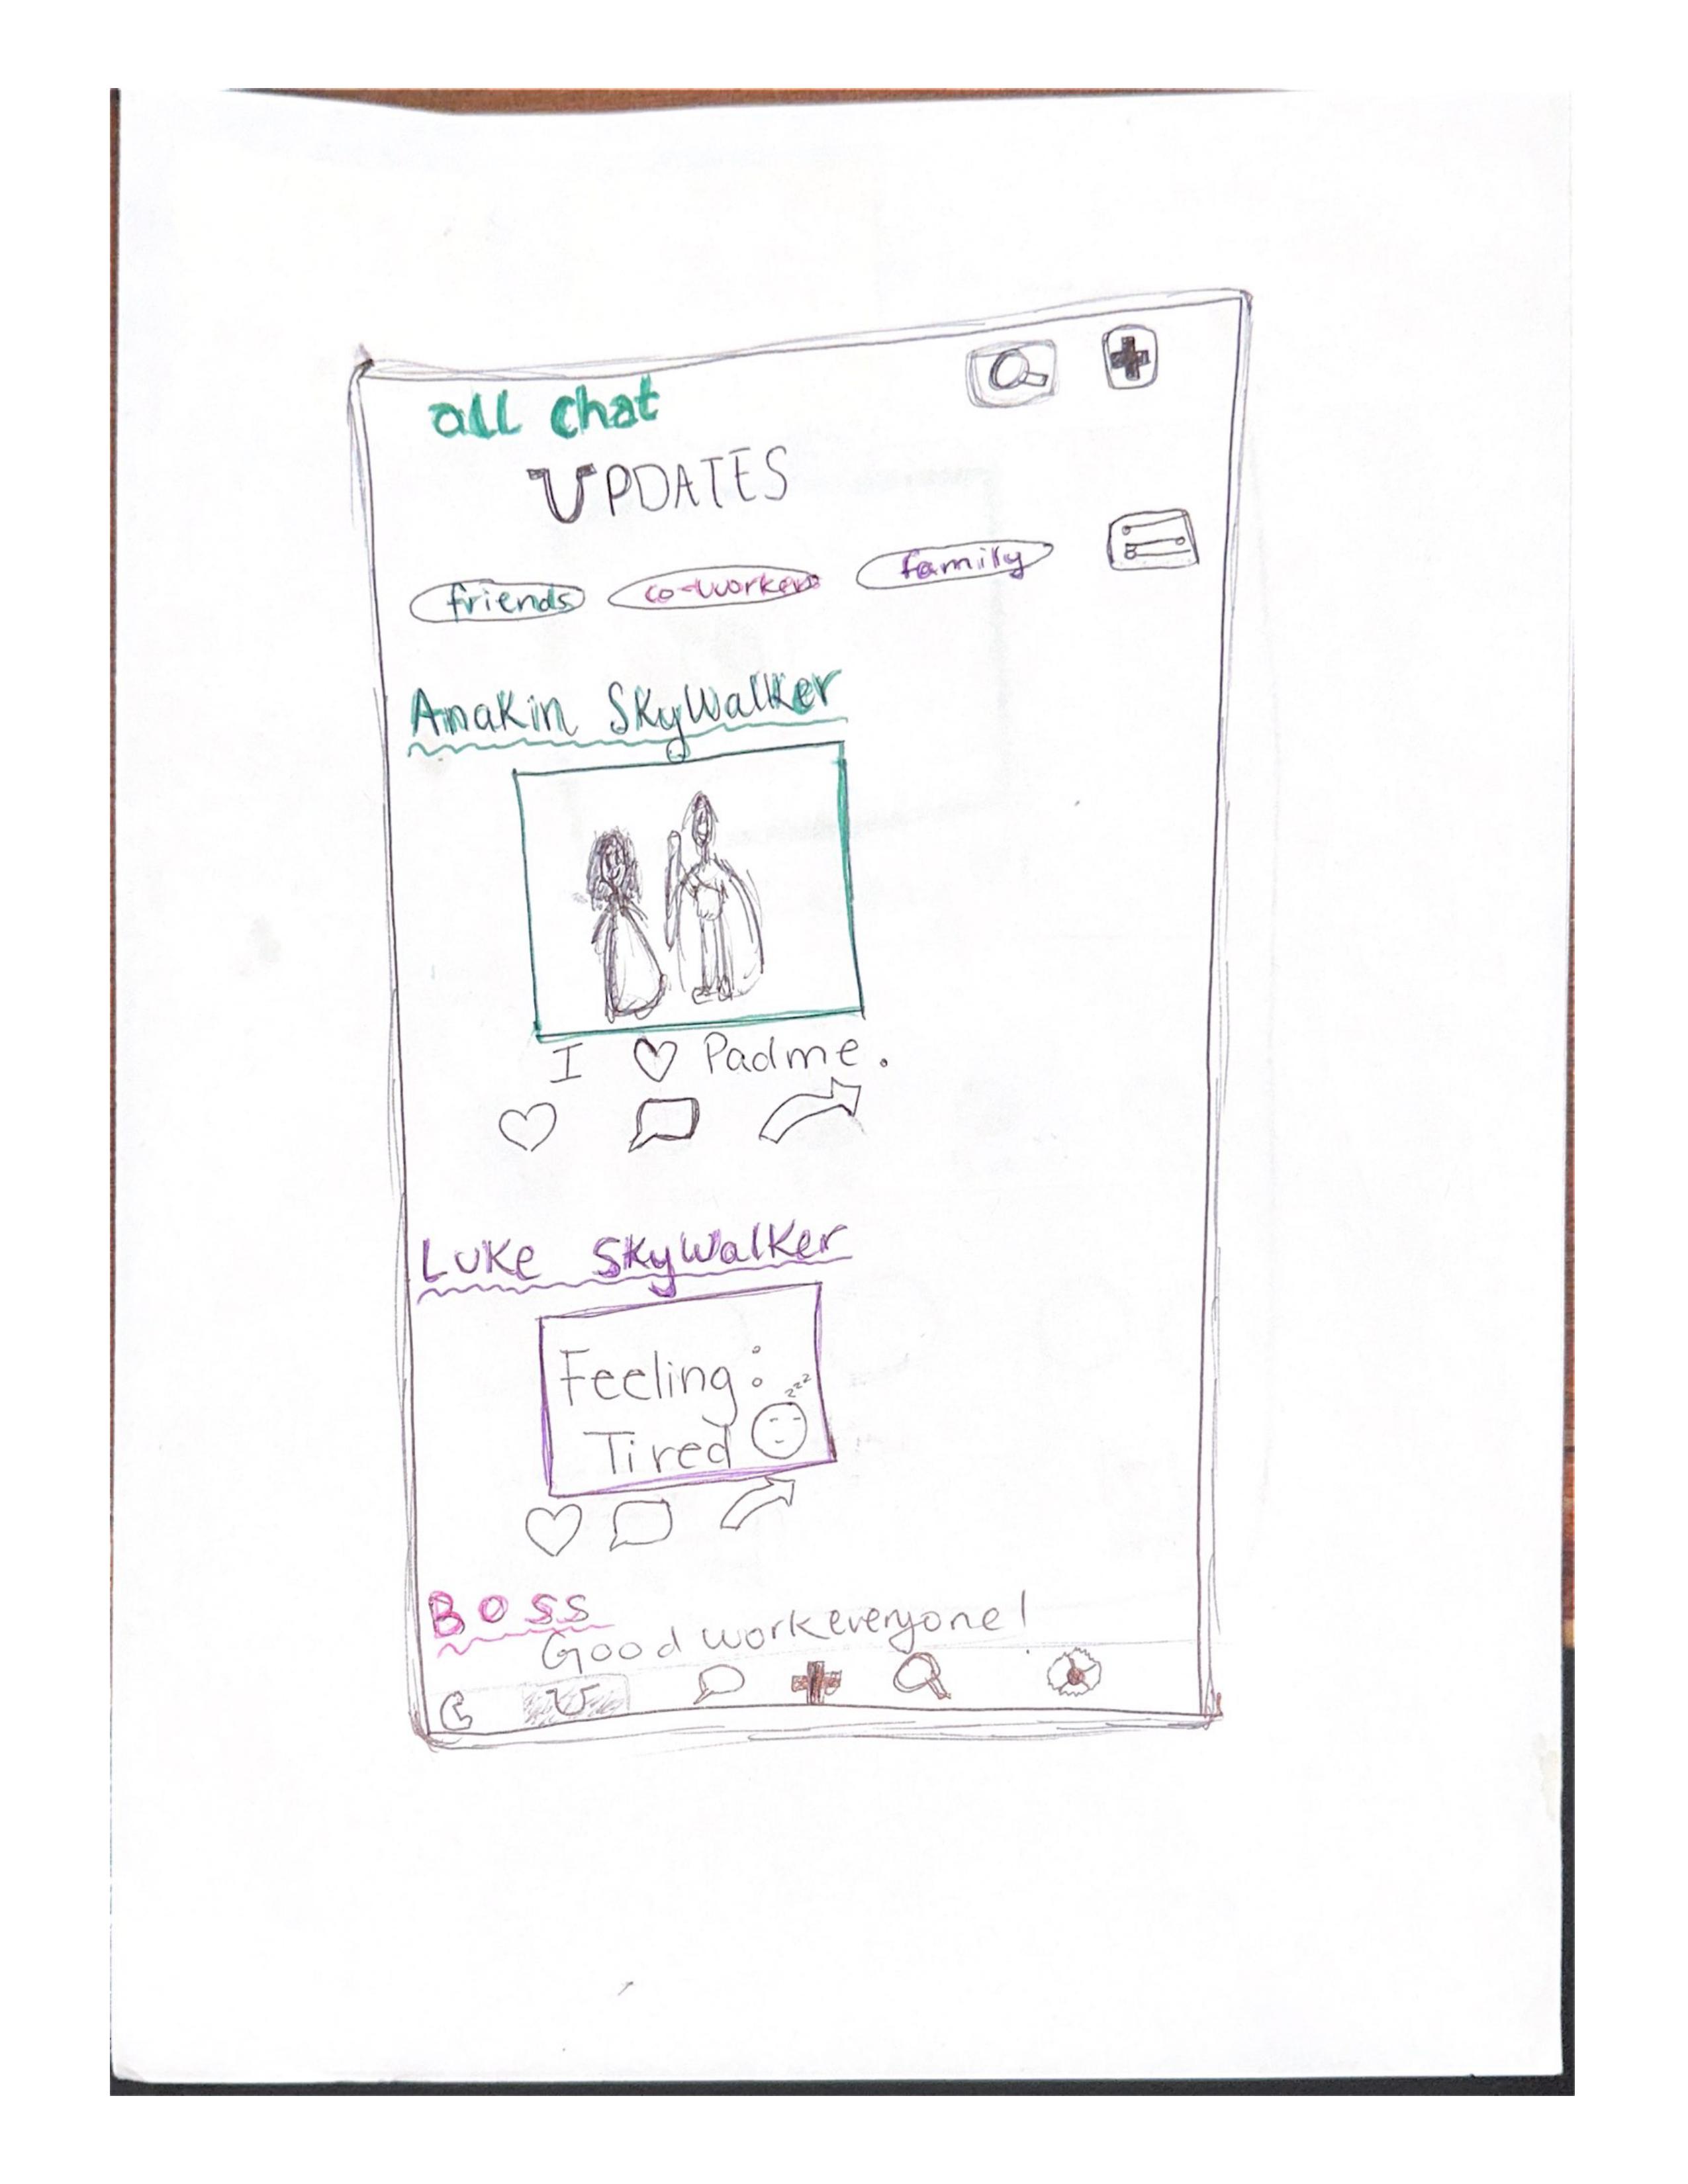 all chat
UPDATES
friends co-workers family
Anakin SkyWalker
I ♡ Padme.
Luke SkyWalker
Feeling:
zzz
Tired
Boss
Good work everyone!
U